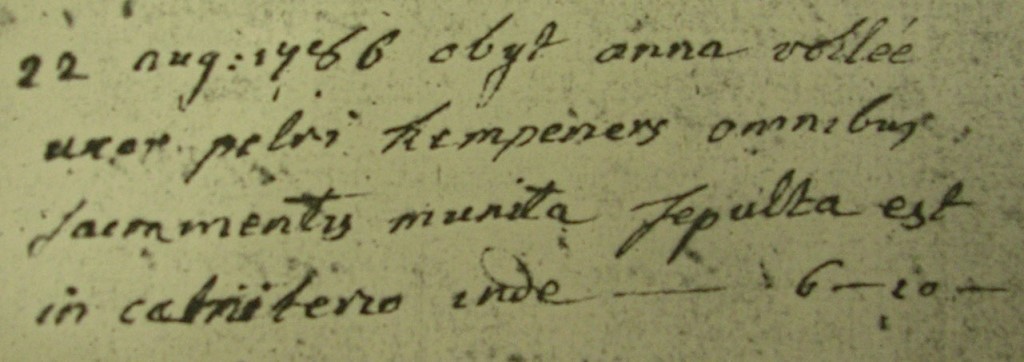 22 aug: 1786 obyt anna vollée
uxor petri Kempeners omnibus
sacramentis munita sepulta est
in cæmiterio inde — 6-10-